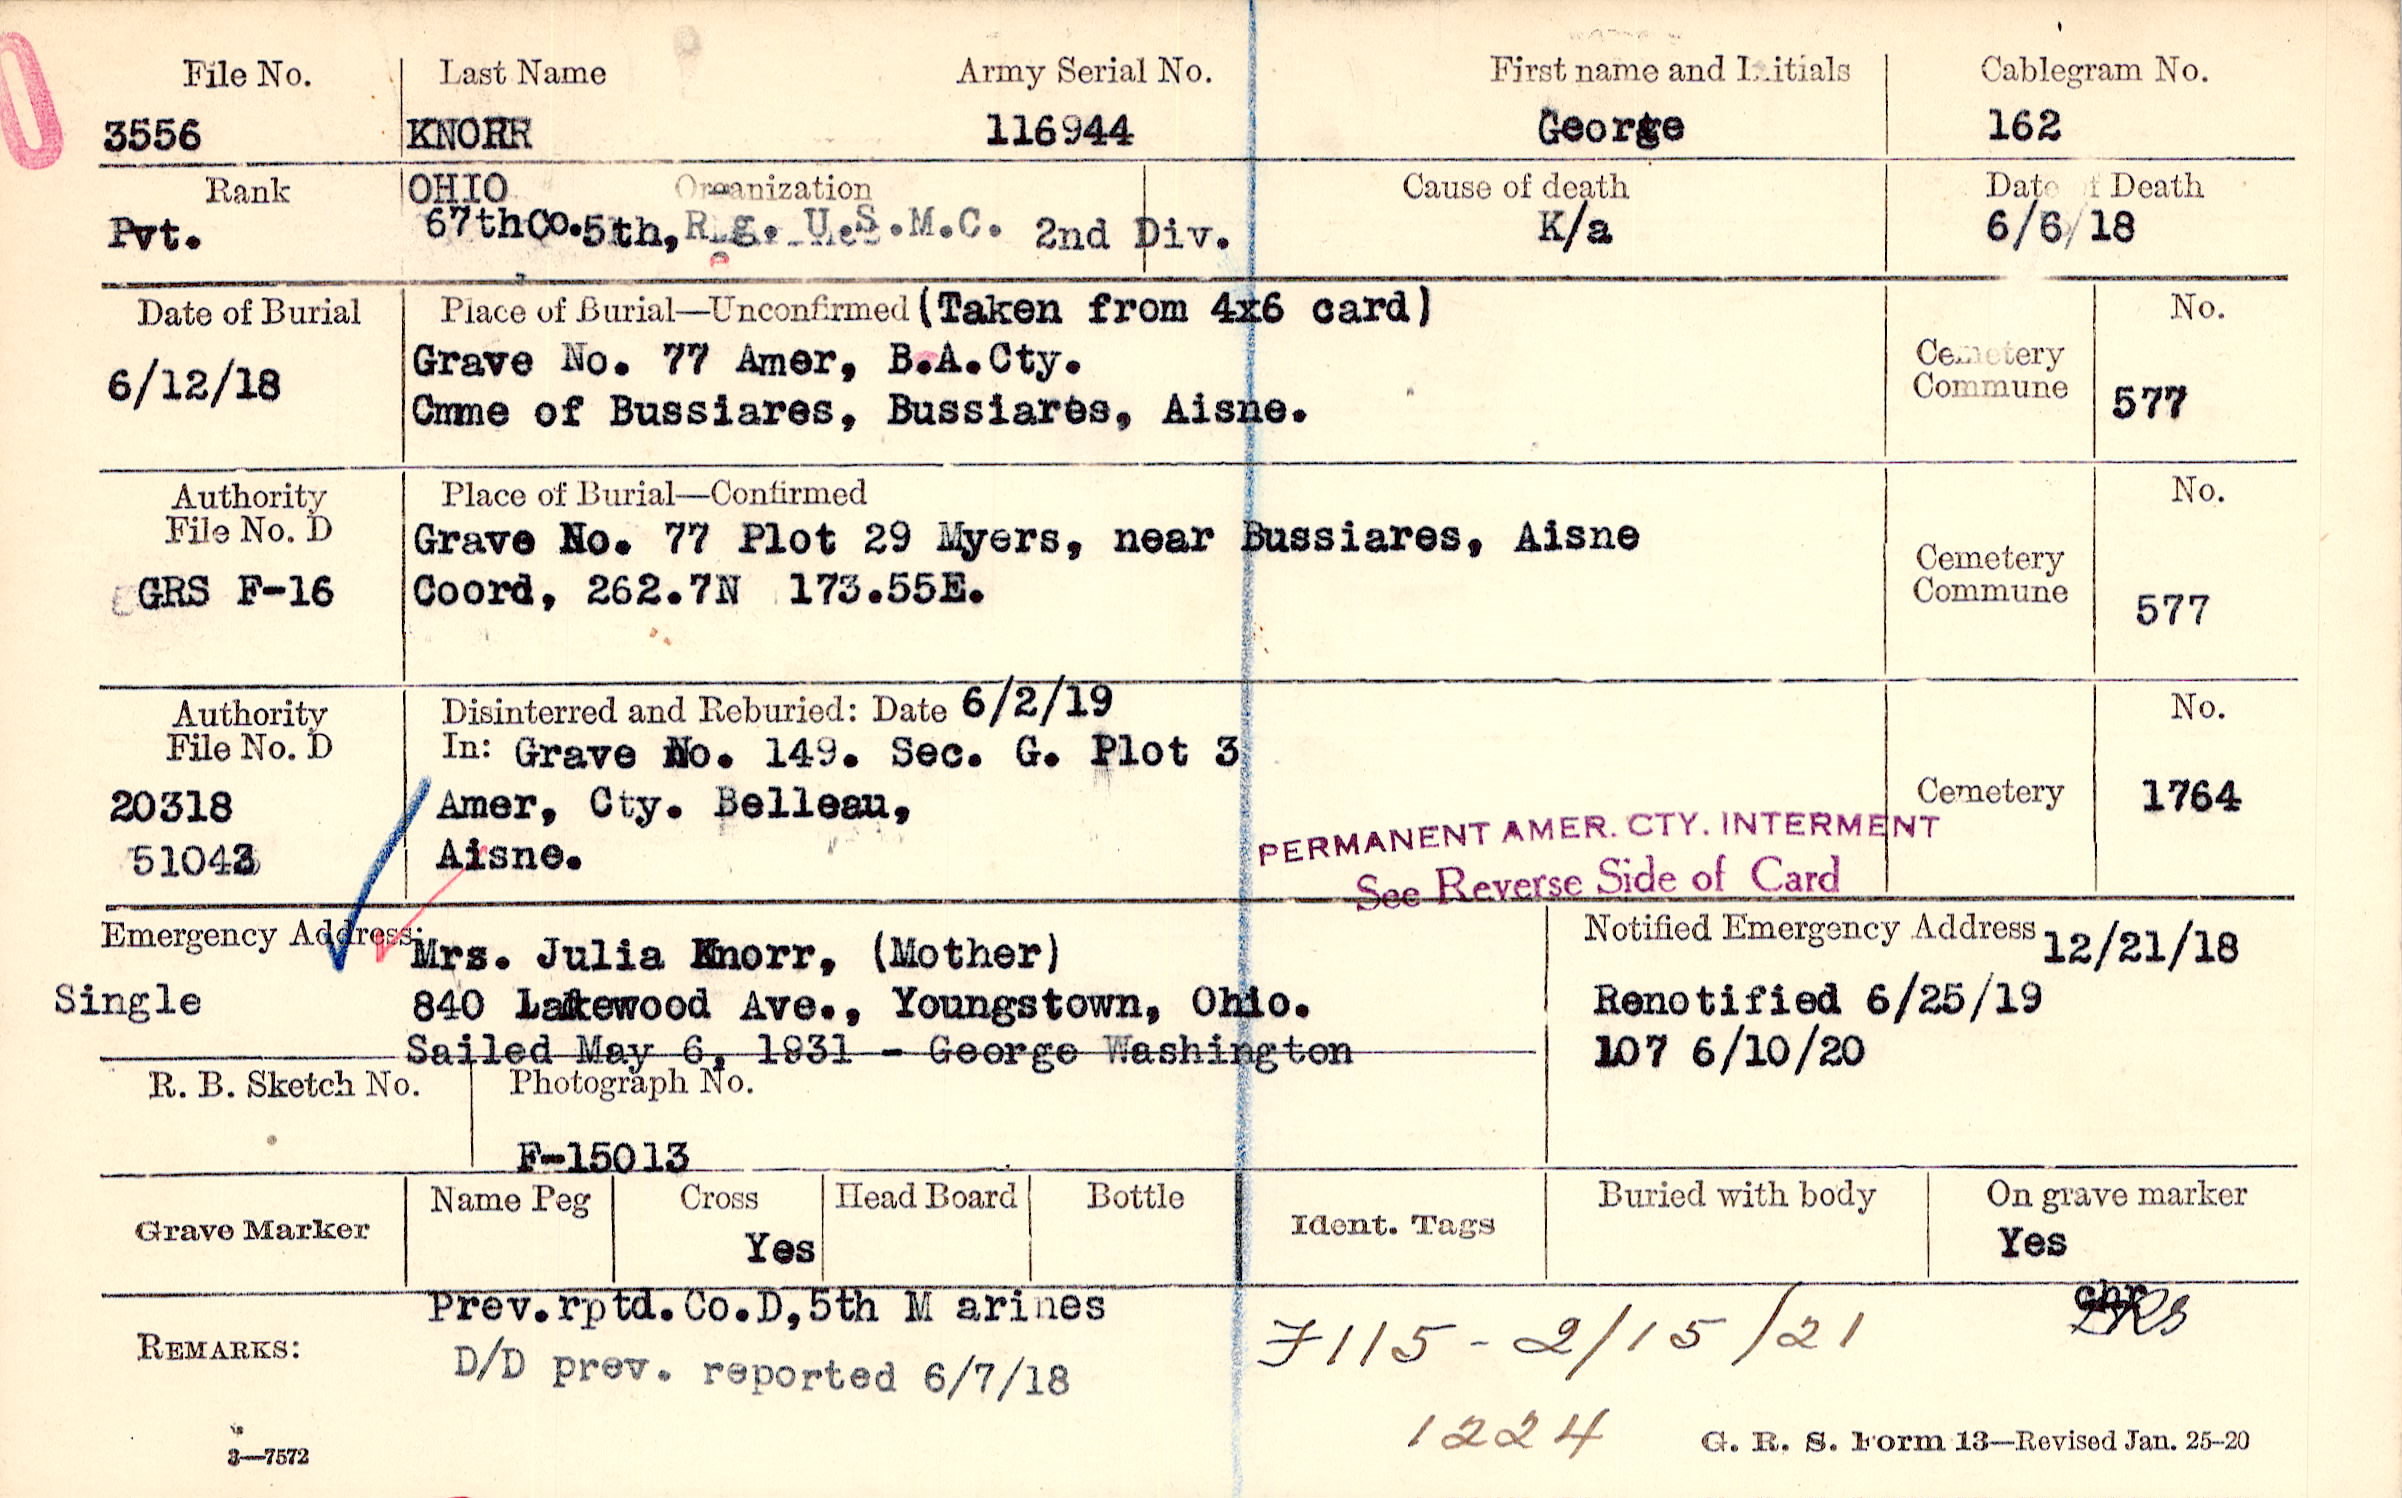 File No. Last Name Army Serial No. First name and Initials Cablegram No.
3556 KNORR 116944 George 162
Rank OHIO Organization Cause of death Date of Death
Pvt. 67thCo.5th, Rg. U.S.M.C. 2nd Div. K/a 6/6/18
Date of Burial Place of Burial—Unconfirmed (Taken from 4x6 card) No.
6/12/18 Grave No. 77 Amer, B.A.Cty. Cemetery
Cmne of Bussiares, Bussiares, Aisne. Commune 577
Authority Place of Burial—Confirmed No.
File No. D Grave No. 77 Plot 29 Myers, near Bussiares, Aisne Cemetery
GRS F-16 Coord, 262.7N 173.55E. Commune 577
Authority Disinterred and Reburied: Date 6/2/19 No.
File No. D In: Grave No. 149. Sec. G. Plot 3
20318 Amer, Cty. Belleau, Cemetery 1764
51043 Aisne. PERMANENT AMER. CTY. INTERMENT
See Reverse Side of Card
Emergency Address: Mrs. Julia Knorr, (Mother) Notified Emergency Address 12/21/18
Single 840 Lakewood Ave., Youngstown, Ohio. Renotified 6/25/19
Sailed May 6, 1931 - George Washington 107 6/10/20
R. B. Sketch No. Photograph No.
F-15013
Grave Marker Name Peg Cross Head Board Bottle Ident. Tags Buried with body On grave marker
Yes Yes
Prev.rptd.Co.D,5th M arines chr
REMARKS: D/D prev. reported 6/7/18 F115 - 2/15/21
1224
3—7572 G. R. S. Form 13—Revised Jan. 25-20